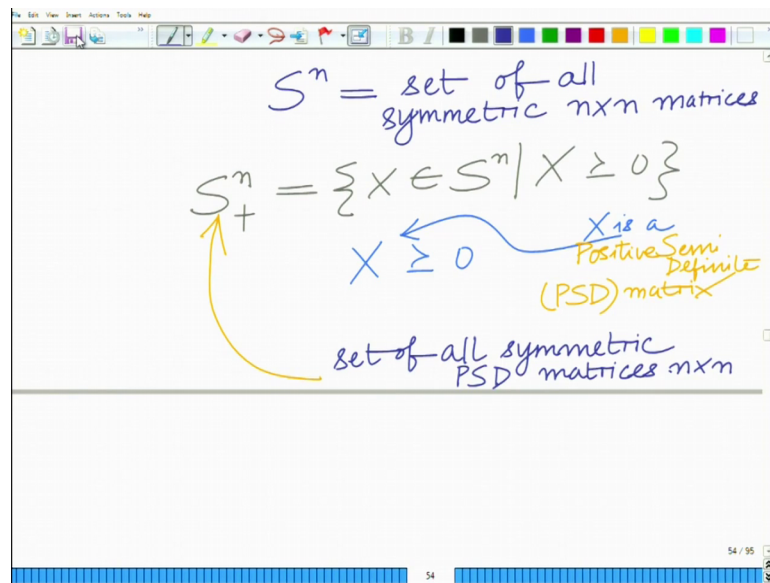 File Edit View Insert Actions Tools Help
B I
Sⁿ = set of all
symmetric n×n matrices
S₊ⁿ = {X ∈ Sⁿ | X ≥ 0}
X ≥ 0
X is a
Positive Semi
Definite
(PSD) matrix
set of all symmetric
PSD matrices n×n
54 / 95
54